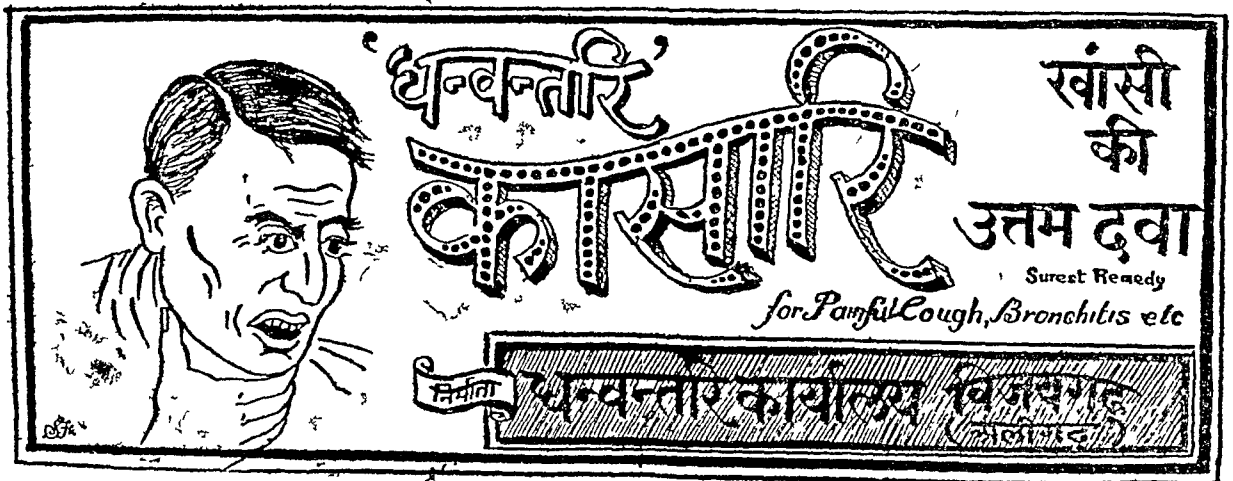 ‘धन्वन्तरि’
कासारि
खांसी
की
उत्तम दवा
Surest Remedy
for Painful Cough, Bronchitis etc
निर्माता
धन्वन्तरि कार्यालय विजयगढ़
अलीगढ़